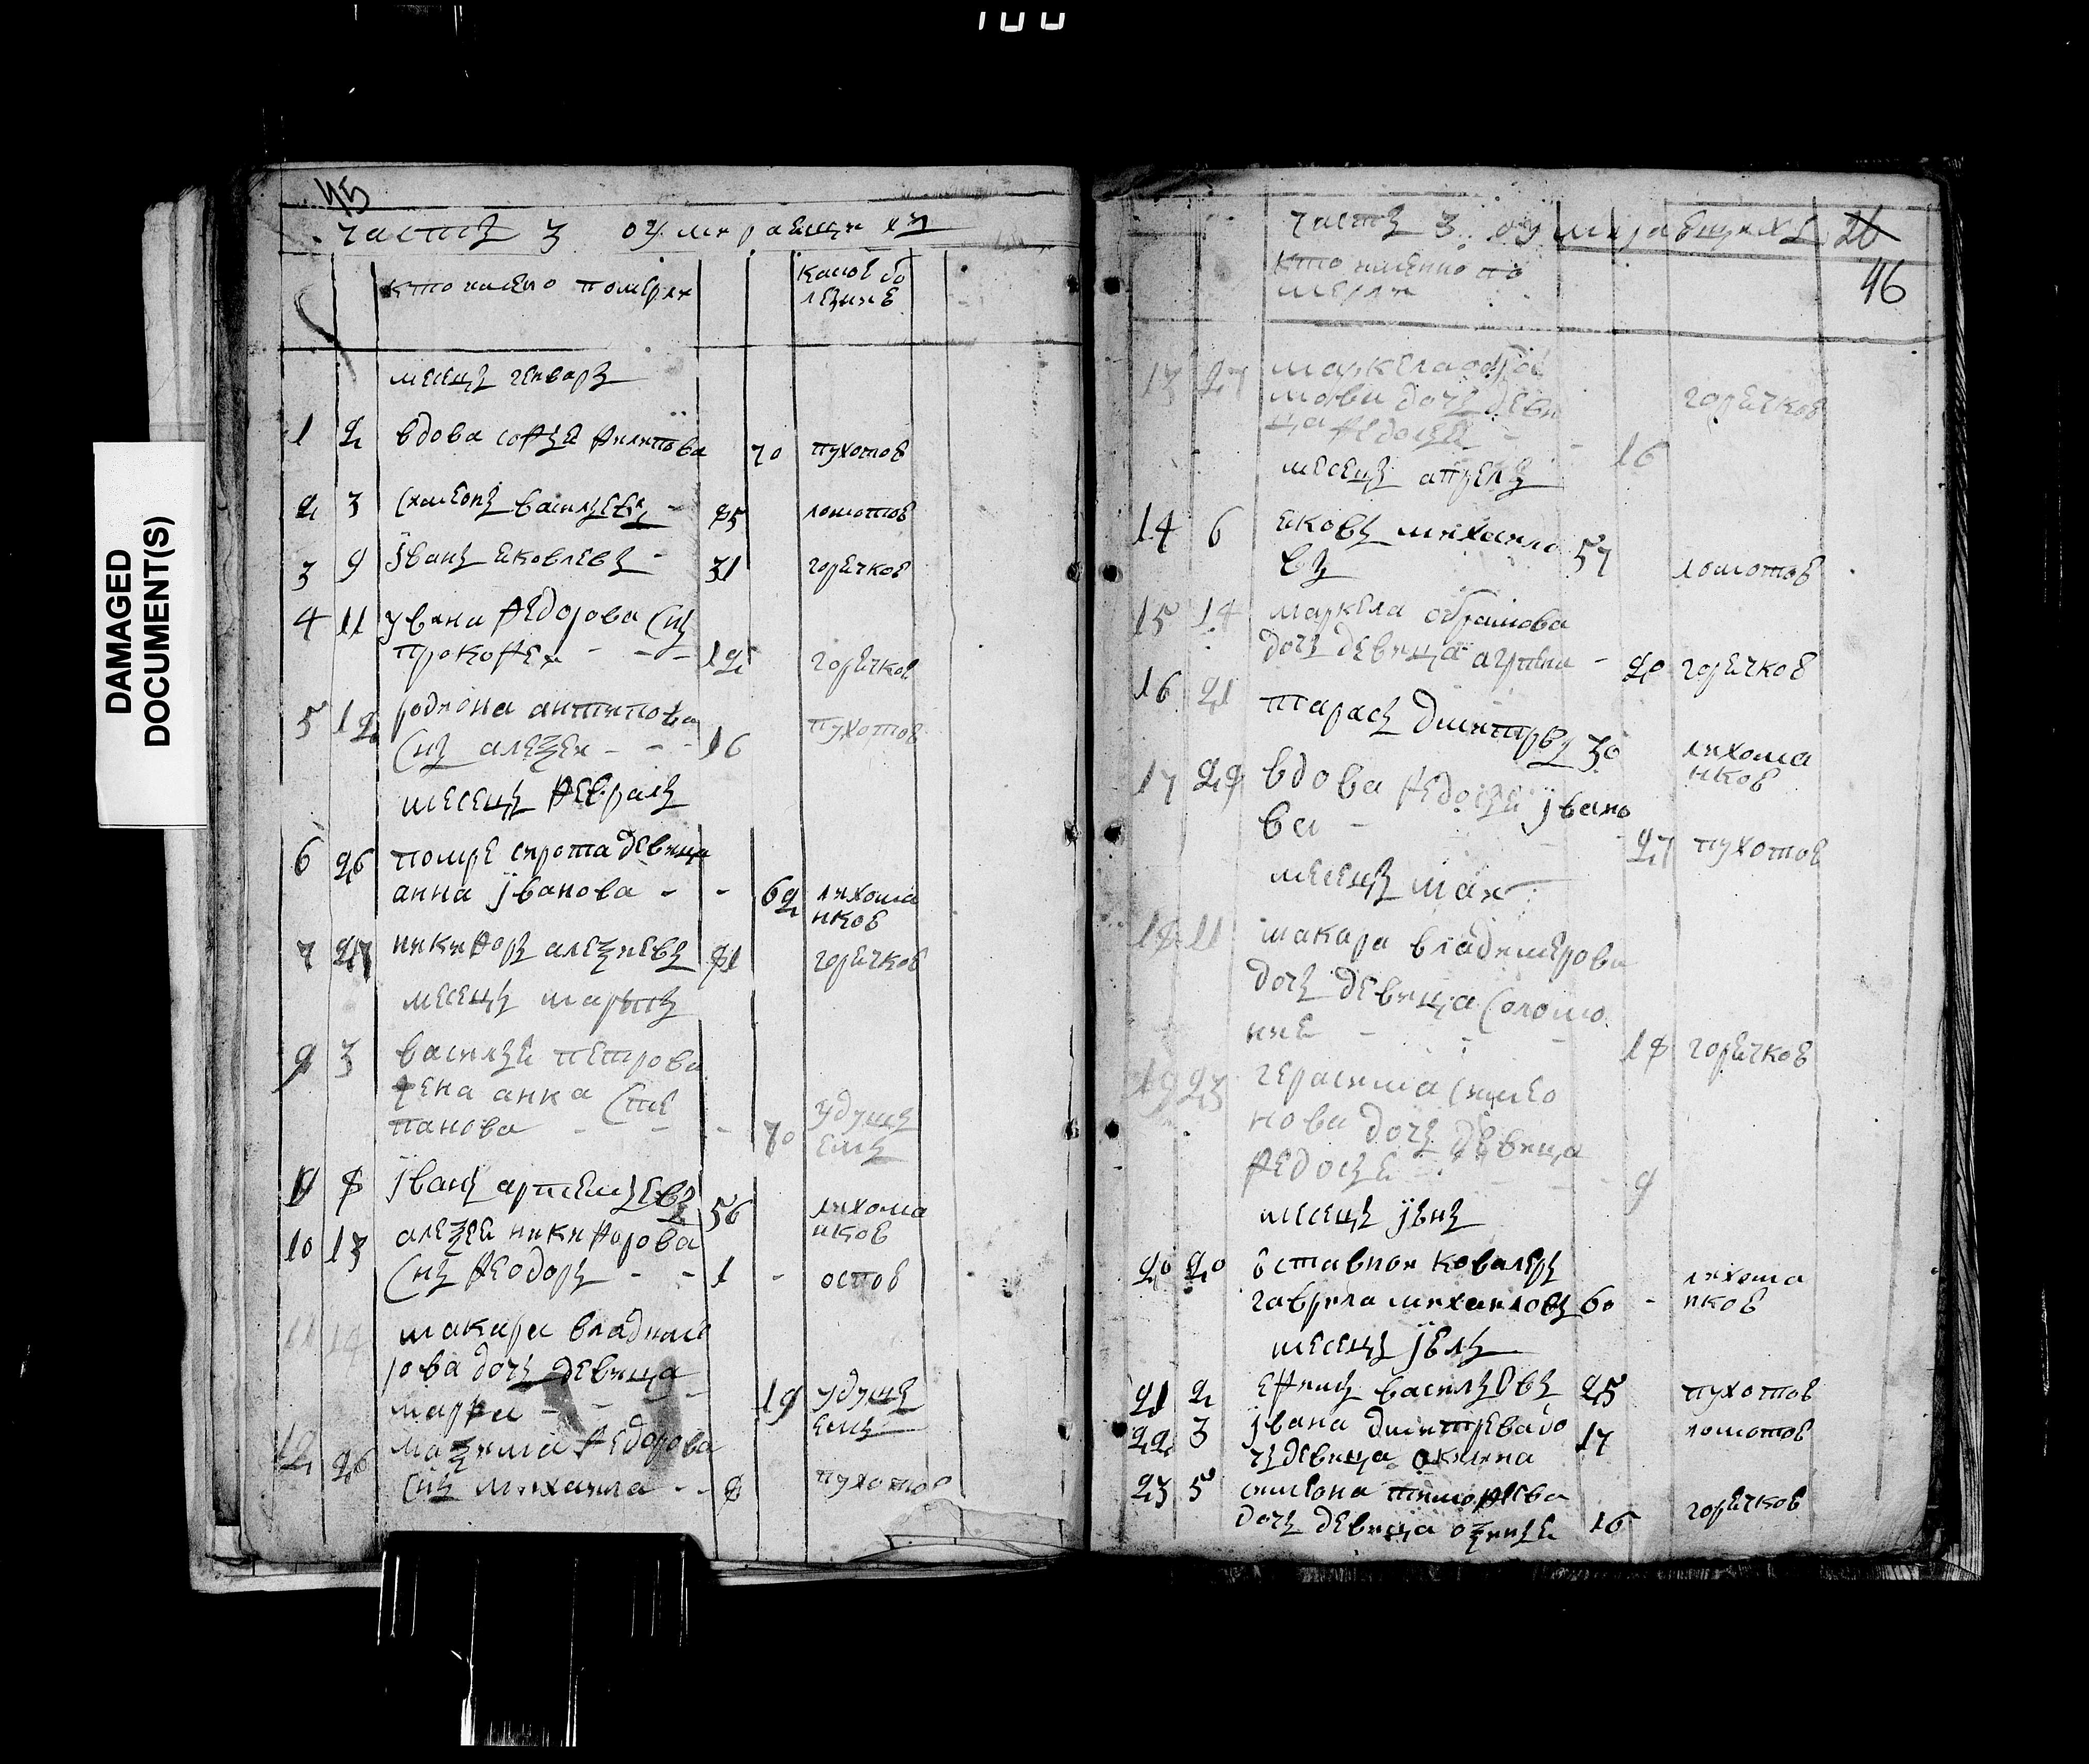 100
DAMAGED
DOCUMENT(S)
45
частъ 3 оумираещихъ
кто имено померли
какое бо
лезние
месецъ генварь
1 2 вдова софья филипова 70 пухотов
2 3 симеонъ васильевъ - 85 ломотов
3 9 јванъ яковлевъ - 31 горячков
4 11 јвана федорова снъ
прокофеи - - - 12 горячков
5 12 родиона антипова
снъ алеѯеи - - - 16 пухотов
месецъ февраль
6 26 помре сирота девица
анна јванова - - 62 лихома
нков
7 27 никифоръ алеѯиевъ 81 горячков
месецъ мартъ
9 3 василья петрова
жена анна сте
панова - - - 70 удушь
емъ
8 јванъ артемьевъ 56 лихома
нков
10 13 алеѯея никифорова
снъ феодоръ - - 1 - оспов
11 14 макара владиме
рова дочь девица
марфа - - - 19 удушь
емъ
12 26 маѯима федорова
снъ михаила - - 8 пухотов
частъ 3 оумираещихъ 26
46
кто именно по
мерли
13 27 маркела
дочь деви
ца федосья - - 16 горячков
месецъ апрель
14 6 яковъ михаило
въ 57 ломотов
15 14 маркела абрамова
дочь девица - 20 горячков
16 21 тарасъ дмитрвъ 30 лихома
нков
17 28 вдова федосья јвано
ва - 27 пухотов
месецъ маи
18 11 макара владимерова
дочь девица соломо
ние - - - 18 горячков
19 23 герасима симео
нова дочь девица
федосье - - - 9
месецъ јюнь
20 20 отставнои ковалеръ
гаврила михаиловъ 60 - лихома
нков
месецъ јюль
21 2 ефимъ васильевъ 25 пухотов
22 3 јвана дмитрева до
чь девица окилина 17 ломотов
23 5 симеона тимофеева
дочь девица оѯинье 16 горячков